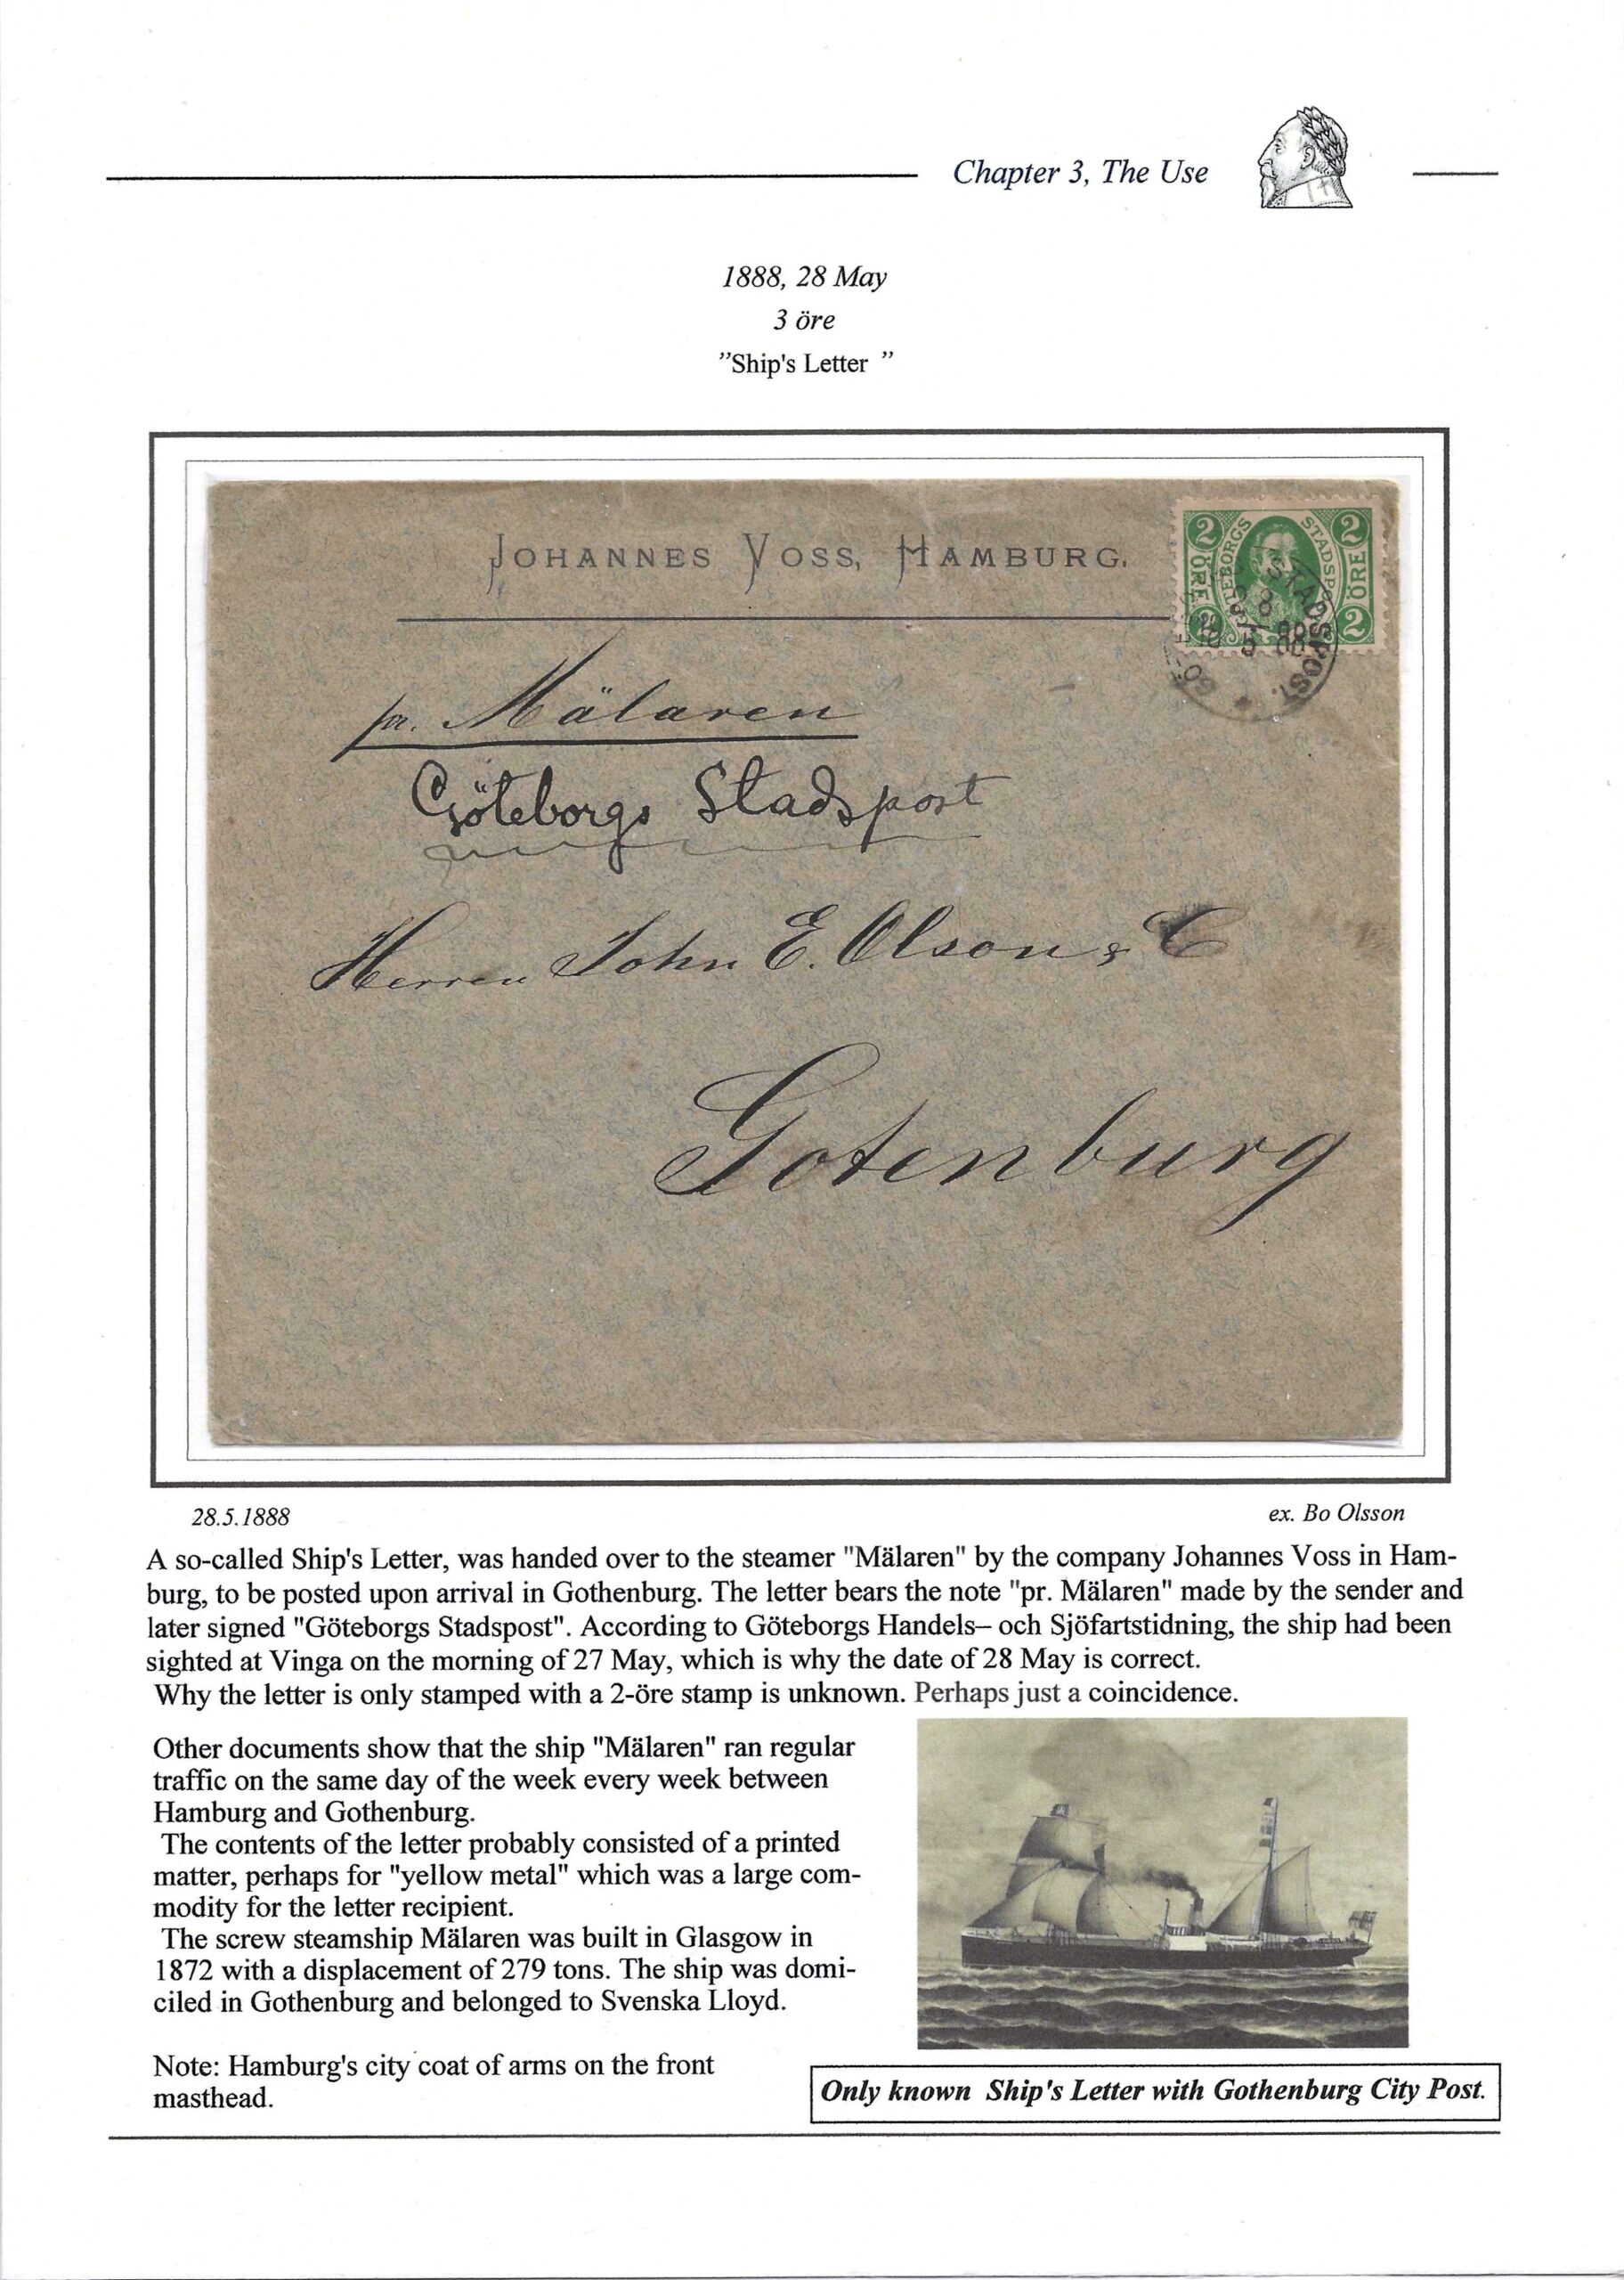 Chapter 3, The Use
1888, 28 May
3 öre
"Ship's Letter "
JOHANNES VOSS, HAMBURG.
2 2
STADSPO
ÖRE ÖRE
2 2
STADSPOST.
pr. Mälaren
Göteborgs Stadspost
Herren John E. Olson & C
Gotenburg
28.5.1888
ex. Bo Olsson
A so-called Ship's Letter, was handed over to the steamer "Mälaren" by the company Johannes Voss in Ham-
burg, to be posted upon arrival in Gothenburg. The letter bears the note "pr. Mälaren" made by the sender and
later signed "Göteborgs Stadspost". According to Göteborgs Handels– och Sjöfartstidning, the ship had been
sighted at Vinga on the morning of 27 May, which is why the date of 28 May is correct.
Why the letter is only stamped with a 2-öre stamp is unknown. Perhaps just a coincidence.
Other documents show that the ship "Mälaren" ran regular
traffic on the same day of the week every week between
Hamburg and Gothenburg.
The contents of the letter probably consisted of a printed
matter, perhaps for "yellow metal" which was a large com-
modity for the letter recipient.
The screw steamship Mälaren was built in Glasgow in
1872 with a displacement of 279 tons. The ship was domi-
ciled in Gothenburg and belonged to Svenska Lloyd.
Note: Hamburg's city coat of arms on the front
masthead.
Only known Ship's Letter with Gothenburg City Post.